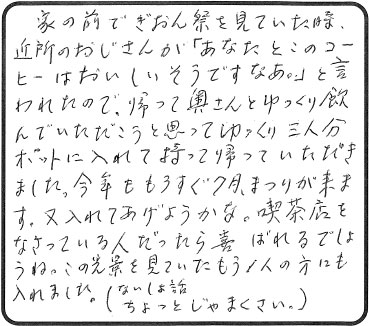 家の前でぎおん祭を見ていた時、
近所のおじさんが「あなたとこのコー
ヒーはおいしいそうですなあ。」と言
われたので、帰って奥さんとゆっくり飲
んでいただこうと思ってゆっくり三人分
ポットに入れて持って帰っていただき
ました。今年ももうすぐ7月、まつりが来ま
す。又入れてあげようかな。喫茶店を
なさっている人だったら喜ばれるでしょ
うね。この光景を見ていたもう1人の方にも
入れました。(ないしょ話
ちょっとじゃまくさい。)